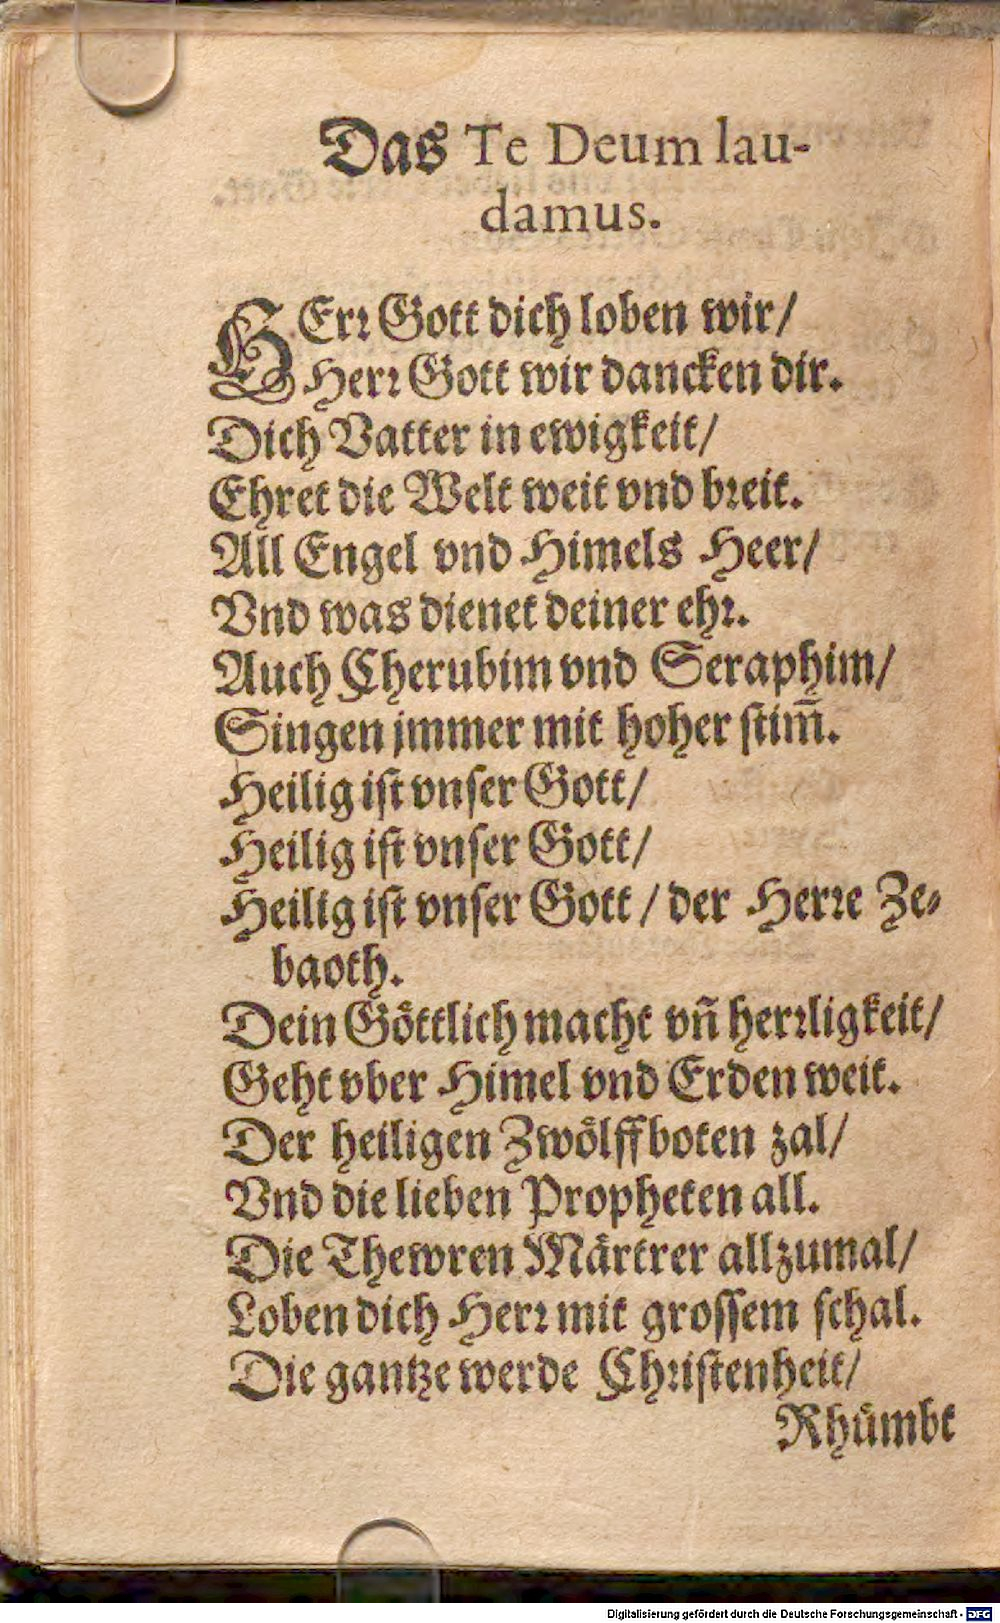 Das Te Deum lau-
damus.
HErr Gott dich loben wir/
Herr Gott wir dancken dir.
Dich Vatter in ewigkeit/
Ehret die Welt weit vnd breit.
All Engel vnd Himels Heer/
Vnd was dienet deiner ehr.
Auch Cherubim vnd Seraphim/
Singen jmmer mit hoher stim̄.
Heilig ist vnser Gott/
Heilig ist vnser Gott/
Heilig ist vnser Gott / der Herre Ze-
baoth.
Dein Göttlich macht vn̄ herrligkeit/
Geht vber Himel vnd Erden weit.
Der heiligen Zwölffboten zal/
Vnd die lieben Propheten all.
Die Thewren Märtrer allzumal/
Loben dich Herr mit grossem schal.
Die gantze werde Christenheit/
Rhümbt
Digitalisierung gefördert durch die Deutsche Forschungsgemeinschaft - DFG